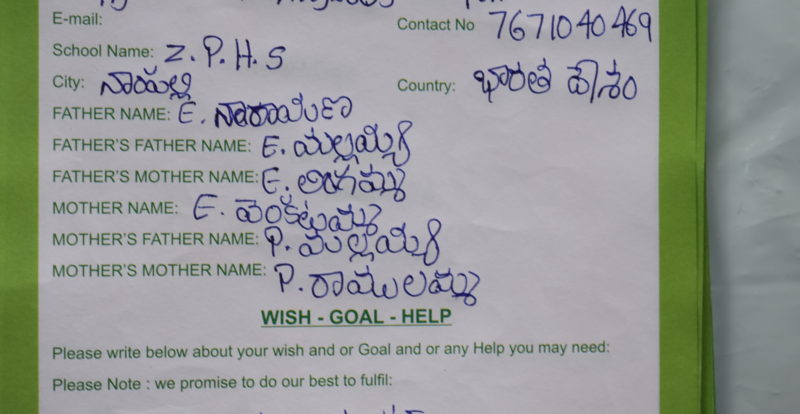 E-mail:
Contact No 7671040469
School Name: Z.P.H.S
City: నాయల్లి
Country: భారత దేశం
FATHER NAME: E. నారాయణ
FATHER'S FATHER NAME: E. మల్లయ్య
FATHER'S MOTHER NAME: E.
MOTHER NAME: E. వెంకటమ్మ
MOTHER'S FATHER NAME: P. మల్లయ్య
MOTHER'S MOTHER NAME: P. రాములమ్మ
WISH - GOAL - HELP
Please write below about your wish and or Goal and or any Help you may need:
Please Note : we promise to do our best to fulfil: